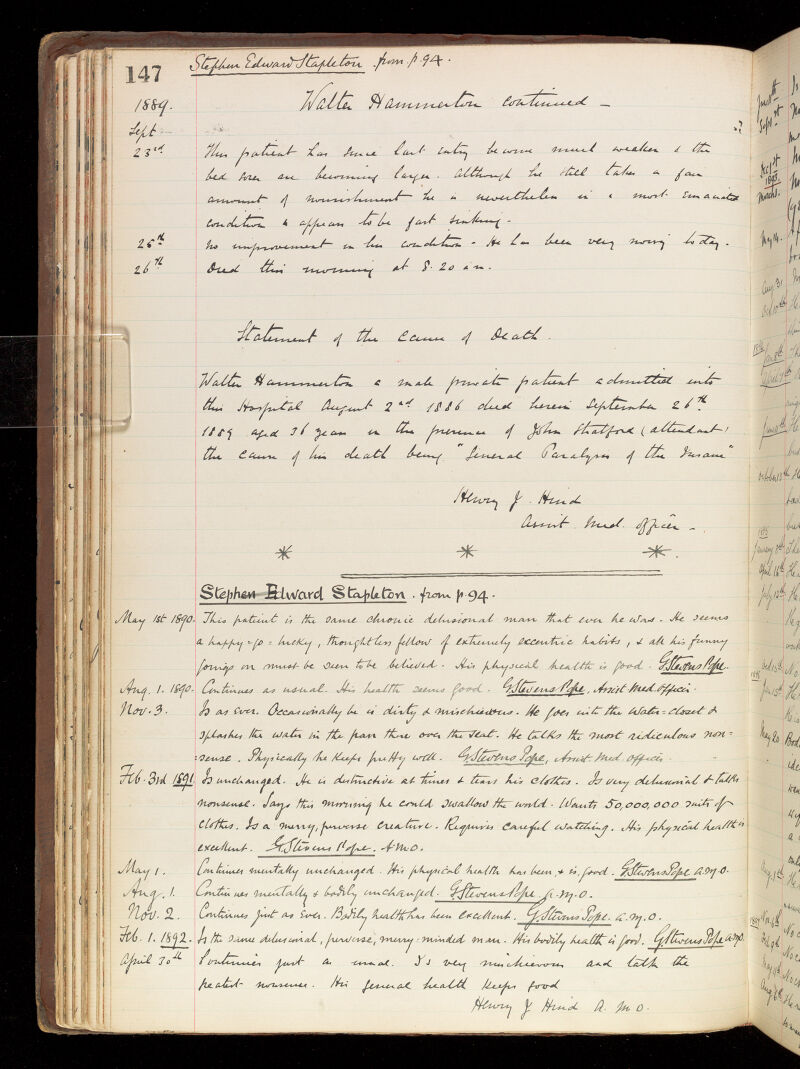 147
Stephen Edward Stapleton from p. 94.
1889. Walter Hammerton continued —
Sept
23rd. This patient has since last entry become much weaker & the
bed sores are becoming larger. Although he still takes a fair
amount of nourishment he is nevertheless in a most emaciated
condition & appears to be fast sinking.
25th No improvement in his condition. He has been very noisy to day.
26th Died this morning at 8.20 a.m.
Statement of the Cause of Death.
Walter Hammerton a male private patient admitted into
this Hospital August 2nd 1886 died herein September 26th
1889 aged 36 years in the presence of John Stratford (attendant)
the cause of his death being "General Paralysis of the Insane"
Henry J. Hind
Assist. Med. Officer —
Stephen Edward Stapleton. from p. 94.
May 1st 1890. This patient is the same chronic delusional man that ever he was. He seems
a happy=go=lucky, thoughtless fellow of extremely excentric habits, & all his funny
goings on must be seen to be believed. His physical health is good. G Stevens Pope.
Aug. 1. 1890. Continues as usual. His health seems good. G Stevens Pope, Assist Med. officer.
Nov. 3. Is as ever. Occasionally he is dirty & mischievous. He goes into the water-closet &
splashes the water in the pan there over the seat. He talks the most ridiculous non=
sense. Physically he keeps pretty well. G Stevens Pope, Assist. Med. officer.
Feb. 3rd 1891. Is unchanged. He is destructive at times & tears his clothes. Is very delusional & talks
nonsense. Says this morning he could swallow the world. Wants 50,000,000 suits of
clothes. Is a merry, perverse creature. Requires careful watching. His physical health is
excellent. G. Stevens Pope. A.M.O.
May 1. Continues mentally unchanged. His physical health has been, & is, good. G Stevens Pope a.m.o.
Aug. 1. Continues mentally & bodily unchanged. G Stevens Pope a.m.o.
Nov. 2. Continues just as ever. Bodily health has been excellent. G Stevens Pope. a.m.o.
Feb. 1. 1892. Is the same delusional, perverse, merry-minded man. His bodily health is good. G Stevens Pope a.m.o.
April 30th Continues just as usual. Is very mischievous and talks the
greatest nonsense. His general health keeps good
Henry J Hind A.M.O.